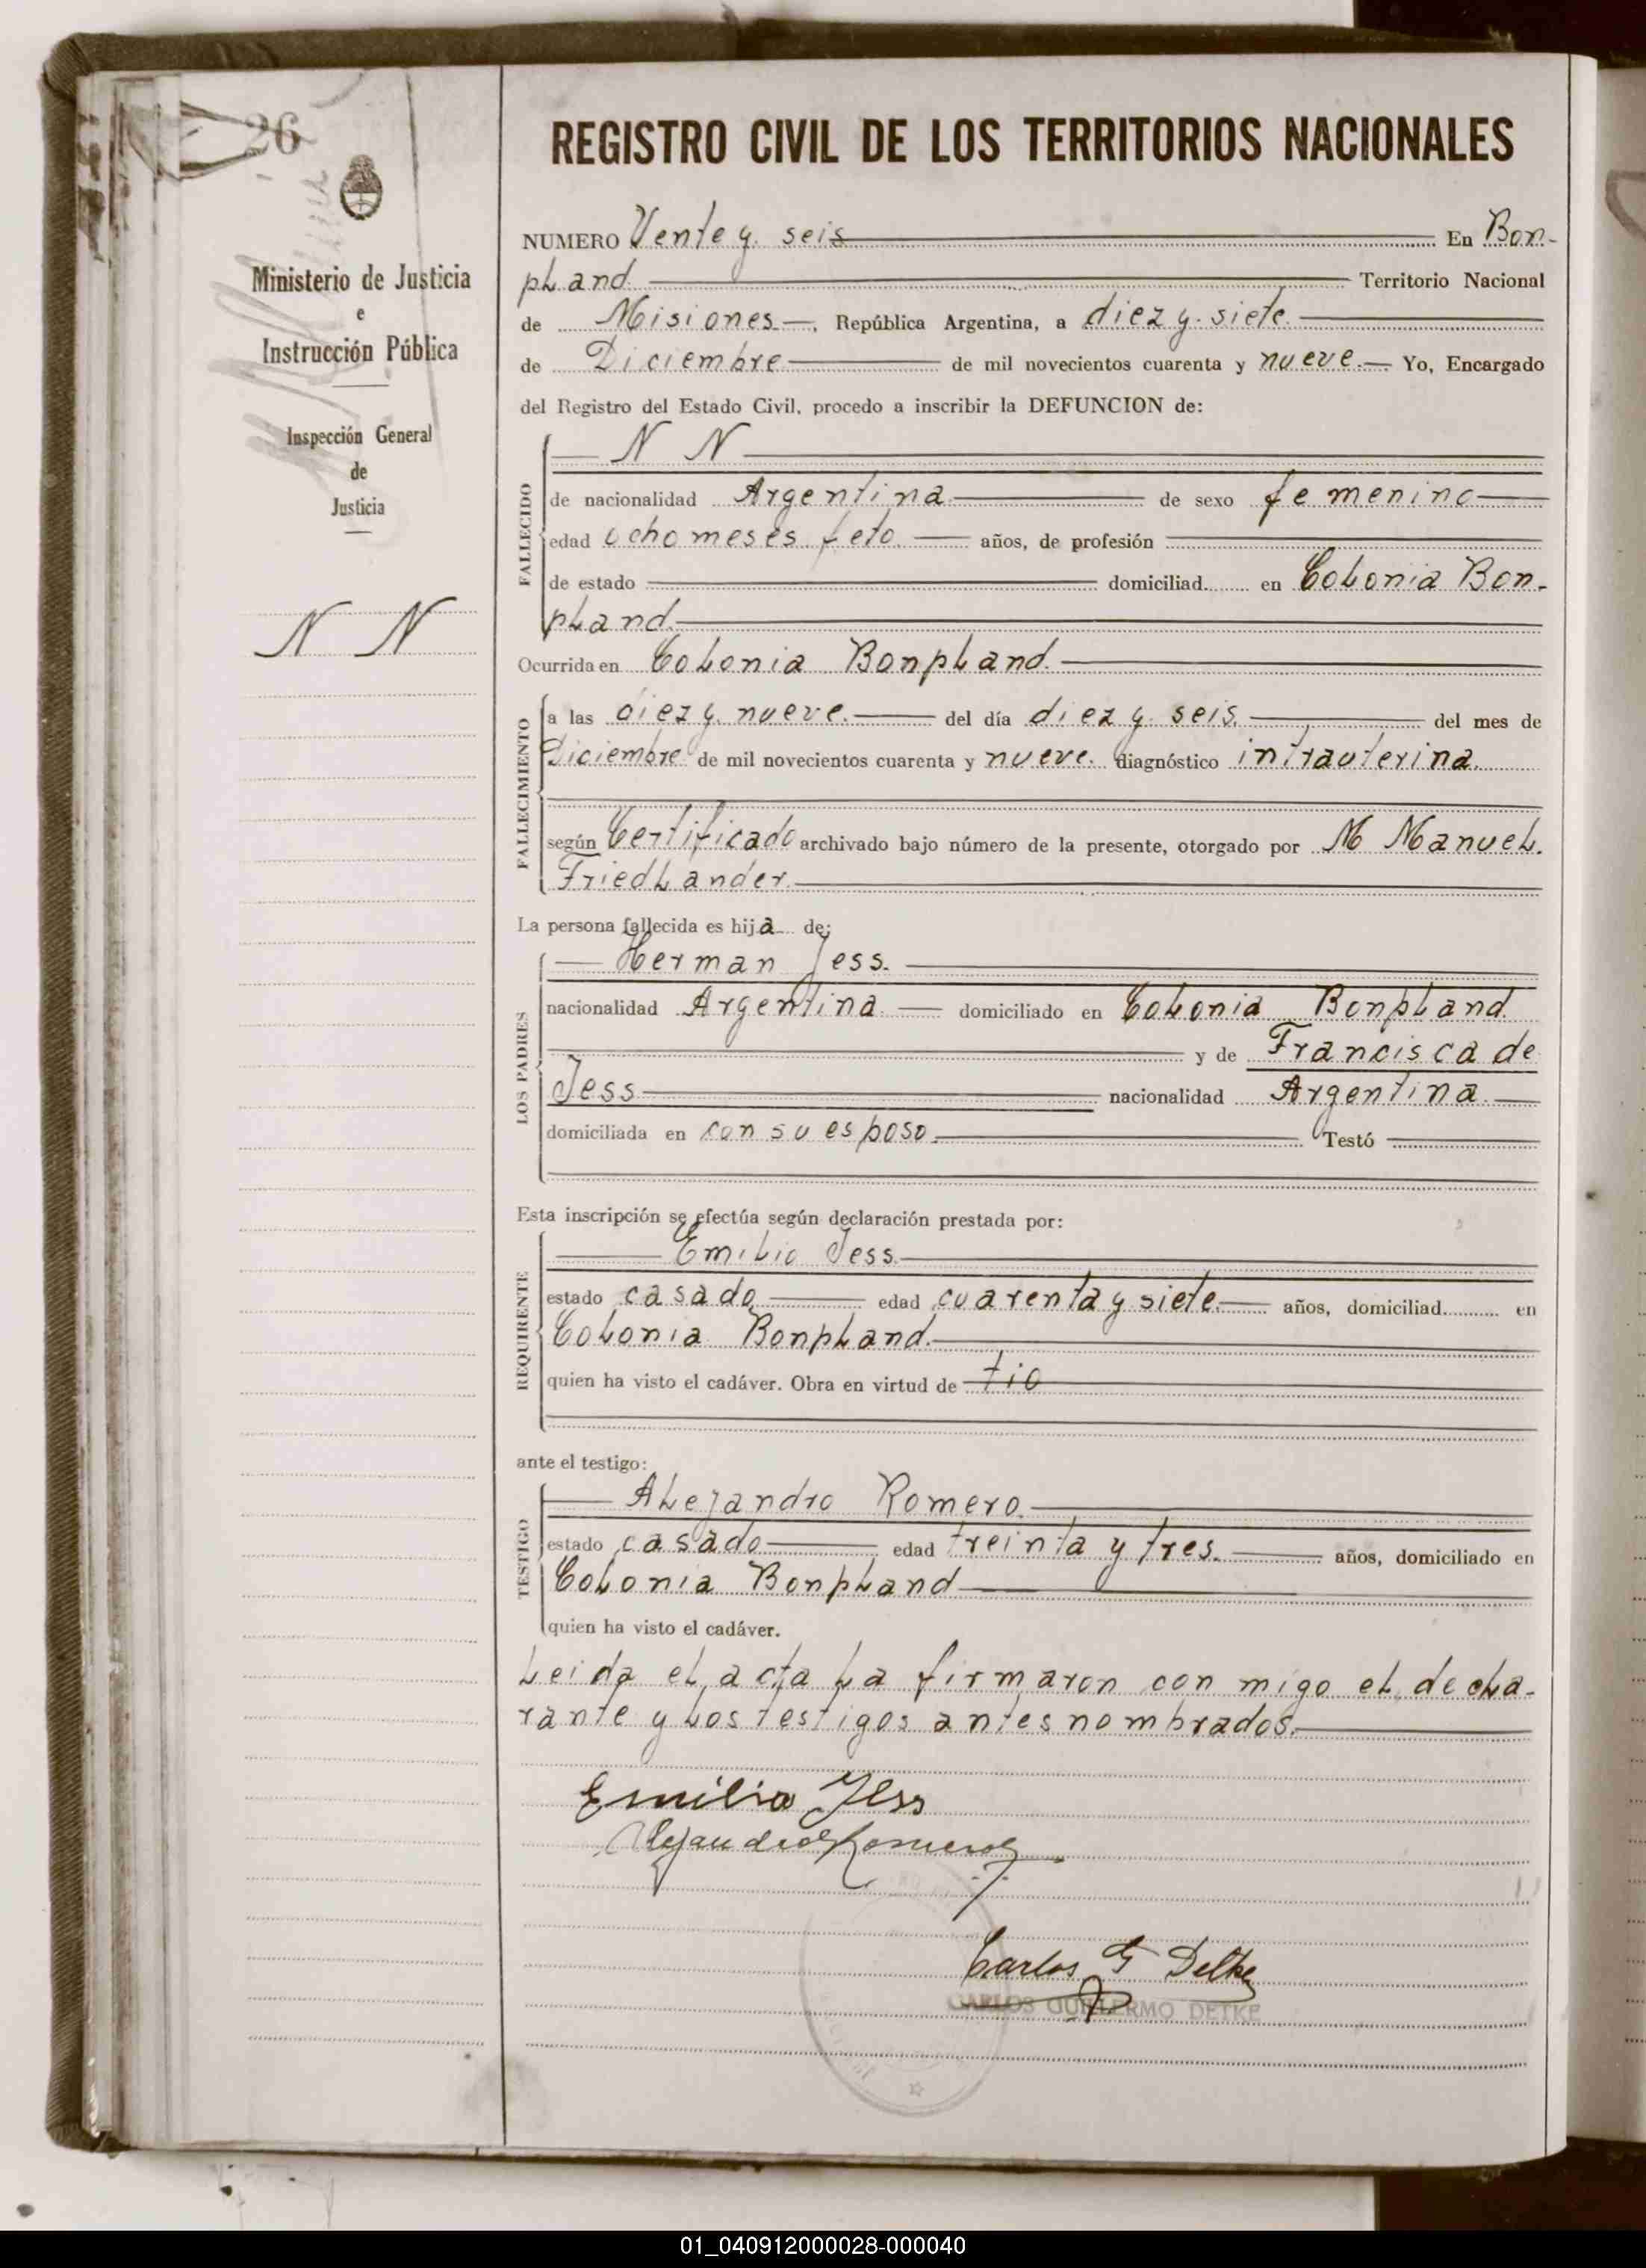 26
Ministerio de Justicia
e
Instrucción Pública
Inspección General
de
Justicia
N N
REGISTRO CIVIL DE LOS TERRITORIOS NACIONALES
NUMERO Vente y. seis En Bon-
pland Territorio Nacional
de Misiones, República Argentina, a diez y. siete.
de Diciembre de mil novecientos cuarenta y nueve. Yo, Encargado
del Registro del Estado Civil, procedo a inscribir la DEFUNCION de:
FALLECIDO
N N
de nacionalidad Argentina de sexo femenino
edad ocho meses feto. años, de profesión
de estado domiciliad en Colonia Bon-
pland.
Ocurrida en Colonia Bonpland.
FALLECIMIENTO
a las diez y. nueve. del día diez y. seis. del mes de
Diciembre de mil novecientos cuarenta y nueve. diagnóstico intrauterina.
según Certificado archivado bajo número de la presente, otorgado por M Manuel.
Friedlander.
La persona fallecida es hija de:
LOS PADRES
Herman Jess.
nacionalidad Argentina. domiciliado en Colonia Bonpland.
y de Francisca de
Jess nacionalidad Argentina.
domiciliada en con su esposo. Testó
Esta inscripción se efectúa según declaración prestada por:
REQUIRENTE
Emilio Jess.
estado casado edad cuarenta y siete. años, domiciliad en
Colonia Bonpland.
quien ha visto el cadáver. Obra en virtud de tio
ante el testigo:
TESTIGO
Alejandro Romero.
estado casado edad treinta y tres. años, domiciliado en
Colonia Bonpland
quien ha visto el cadáver.
Leida el acta la firmaron con migo el decla-
rante y los testigos antes nombrados.
Emilio Jess
Alejandro Romero
Carlos G Detke
CARLOS GUILLERMO DETKE
01_040912000028-000040